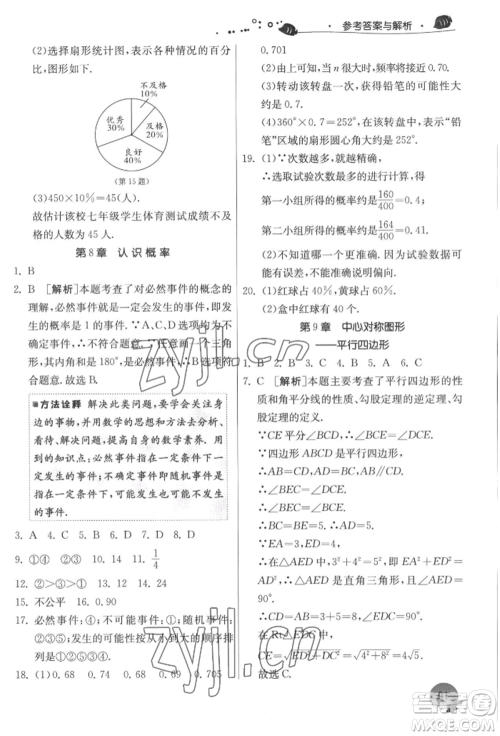 参考答案与解析
(2)选择扇形统计图,表示各种情况的百分
比,图形如下:
不及格
10%
优秀
30%
及格
20%
良好
40%
(第15题)
(3)450×10%=45.
故估计该校七年级学生体育测试成绩不及
格的人数为 45 人.
第8章 认识概率
1. B
2. B [解析]本题考查了对必然事件的概念的
理解,必然事件指在一定条件下一定发生的
事件,发生的概率是1的事件.∵A、C、D选
项为不确定事件,即随机事件,故不符合题
意.∴一定发生的事件只有B,任意三角形的
内角和是180°,是必然事件,符合题意.∴B
符合题意.故选B.
方法诠释 解决此类问题,要学会关注身
边的事物,并用数学的思想和方法去分析、
看待、解决问题,提高自身的数学素养.用到
的知识点为:必然事件指在一定条件下一
定发生的事件;不确定事件即随机事件是
指在一定条件下,可能发生也可能不发生
的事件.
3. A 4. C 5. B 6. D 7. B 8. D
9. ①④ ②③⑤ 10. 14 11. 1/4
12. ①③④②
15. 不公平 16. 0.90
17. 必然事件:④;不可能事件:①;随机事件:
②③⑤;发生的可能性按从小到大的顺序排
列:①③⑤②④.
18. (1)0.68 0.74 0.68 0.69 0.705
0.701
(2)由上可知,当 n 很大时,频率将会接近0.7.
(3)转动该转盘一次,获得铅笔的可能性大
约是 0.7.
(4)360°×0.7=252°.故在该转盘中,标有“铅
笔”区域的扇形圆心角大约是 252°.
19. (1)∵次数越多,就越精确,
∴选取试验次数最多的进行计算可得:
第一小组所得的概率约是160/400=0.4;
第二小组所得的概率约是164/400=0.41.
(2)不知道哪一个更准确.因为试验数据可
能有误差,不能准确说明偏向.
20. (1)红球占40%,黄球占60%.
(2)盒中红球有 40 个.
第9章 中心对称图形
——平行四边形
1. B 2. B 3. C 4. B 5. A 6. C
7. C [解析]本题主要考查了平行四边形的性质
和角平分线的性质、勾股定理的逆定理、勾
股定理的应用.
∵CE 平分∠BCD,∴∠BCE=∠DCE.
∵四边形 ABCD 是平行四边形,
∴AB=CD,AD=BC,AB∥CD.
∴∠BEC=∠DCE.
∴∠BEC=∠BCE.∴BC=BE=5.
∴AD=5.
∵EA=3,ED=4,
∴在△AED 中,3²+4²=5²,
即EA²+ED²=AD².
∴∠AED=90°.∴△AED是直角三角形.
∴CD=AB=3+5=8,∠EDC=90°.
∴在Rt△EDC中,
CE=√(ED²+DC²)=√(4²+8²)=4√5.
故选C.